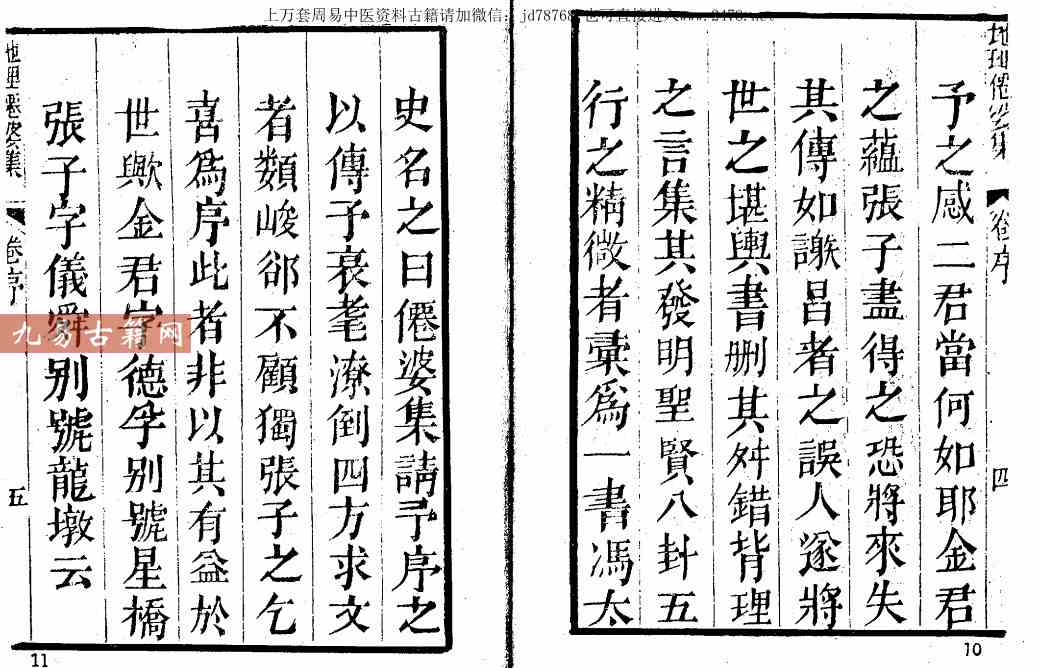 上万套周易中医资料古籍请加微信:jd78768 也可直接进入www.
地理僊婆集 卷序 四
予之感二君當何如耶金君
之蘊張子盡得之恐將來失
其傳如謝昌者之誤人遂將
世之堪輿書删其舛錯背理
之言集其發明聖賢八卦五
行之精微者彙爲一書馮太
10
史名之曰僊婆集請予序之
以傳予衰耄潦倒四方求文
者類峻郤不顧獨張子之乞
喜爲序此者非以其有益於
世歟金君字德孚别號星橋
張子字儀舜别號龍墩云
地理僊婆集 卷序 五
11
九易古籍网